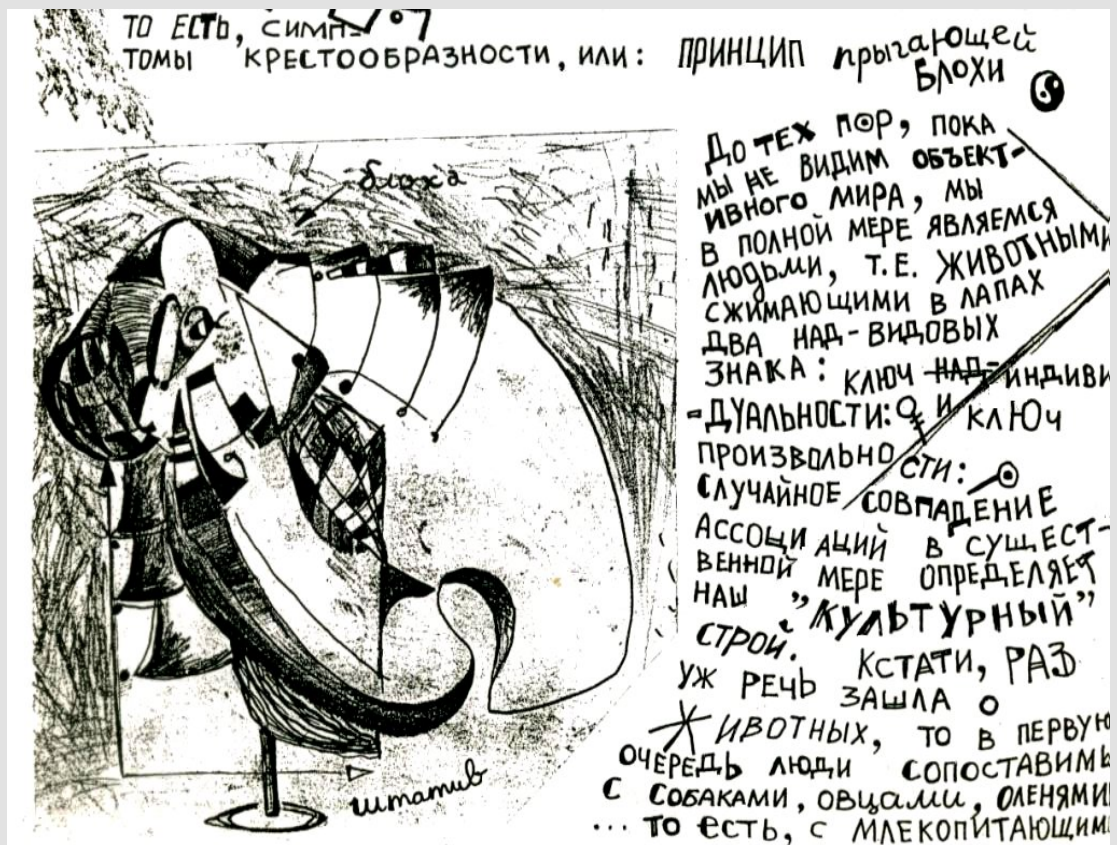 ТО ЕСТЬ, СИМП-
ТОМЫ КРЕСТООБРАЗНОСТИ, ИЛИ: ПРИНЦИП прыгающей
БЛОХИ
блоха
ДО ТЕХ ПОР, ПОКА
МЫ НЕ ВИДИМ ОБЪЕКТ-
ИВНОГО МИРА, МЫ
В ПОЛНОЙ МЕРЕ ЯВЛЯЕМСЯ
ЛЮДЬМИ, Т.Е. ЖИВОТНЫМИ
СЖИМАЮЩИМИ В ЛАПАХ
ДВА НАД-ВИДОВЫХ
ЗНАКА: КЛЮЧ НАД-ИНДИВИ
-ДУАЛЬНОСТИ: ♀ И КЛЮЧ
ПРОИЗВОЛЬНОСТИ:
СЛУЧАЙНОЕ СОВПАДЕНИЕ
АССОЦИАЦИЙ В СУЩЕСТ-
ВЕННОЙ МЕРЕ ОПРЕДЕЛЯЕТ
НАШ „КУЛЬТУРНЫЙ”
СТРОЙ. КСТАТИ, РАЗ
УЖ РЕЧЬ ЗАШЛА О
ЖИВОТНЫХ, ТО В ПЕРВУЮ
ОЧЕРЕДЬ ЛЮДИ СОПОСТАВИМЫ
С СОБАКАМИ, ОВЦАМИ, ОЛЕНЯМИ
... ТО ЕСТЬ, С МЛЕКОПИТАЮЩИМ
штатив